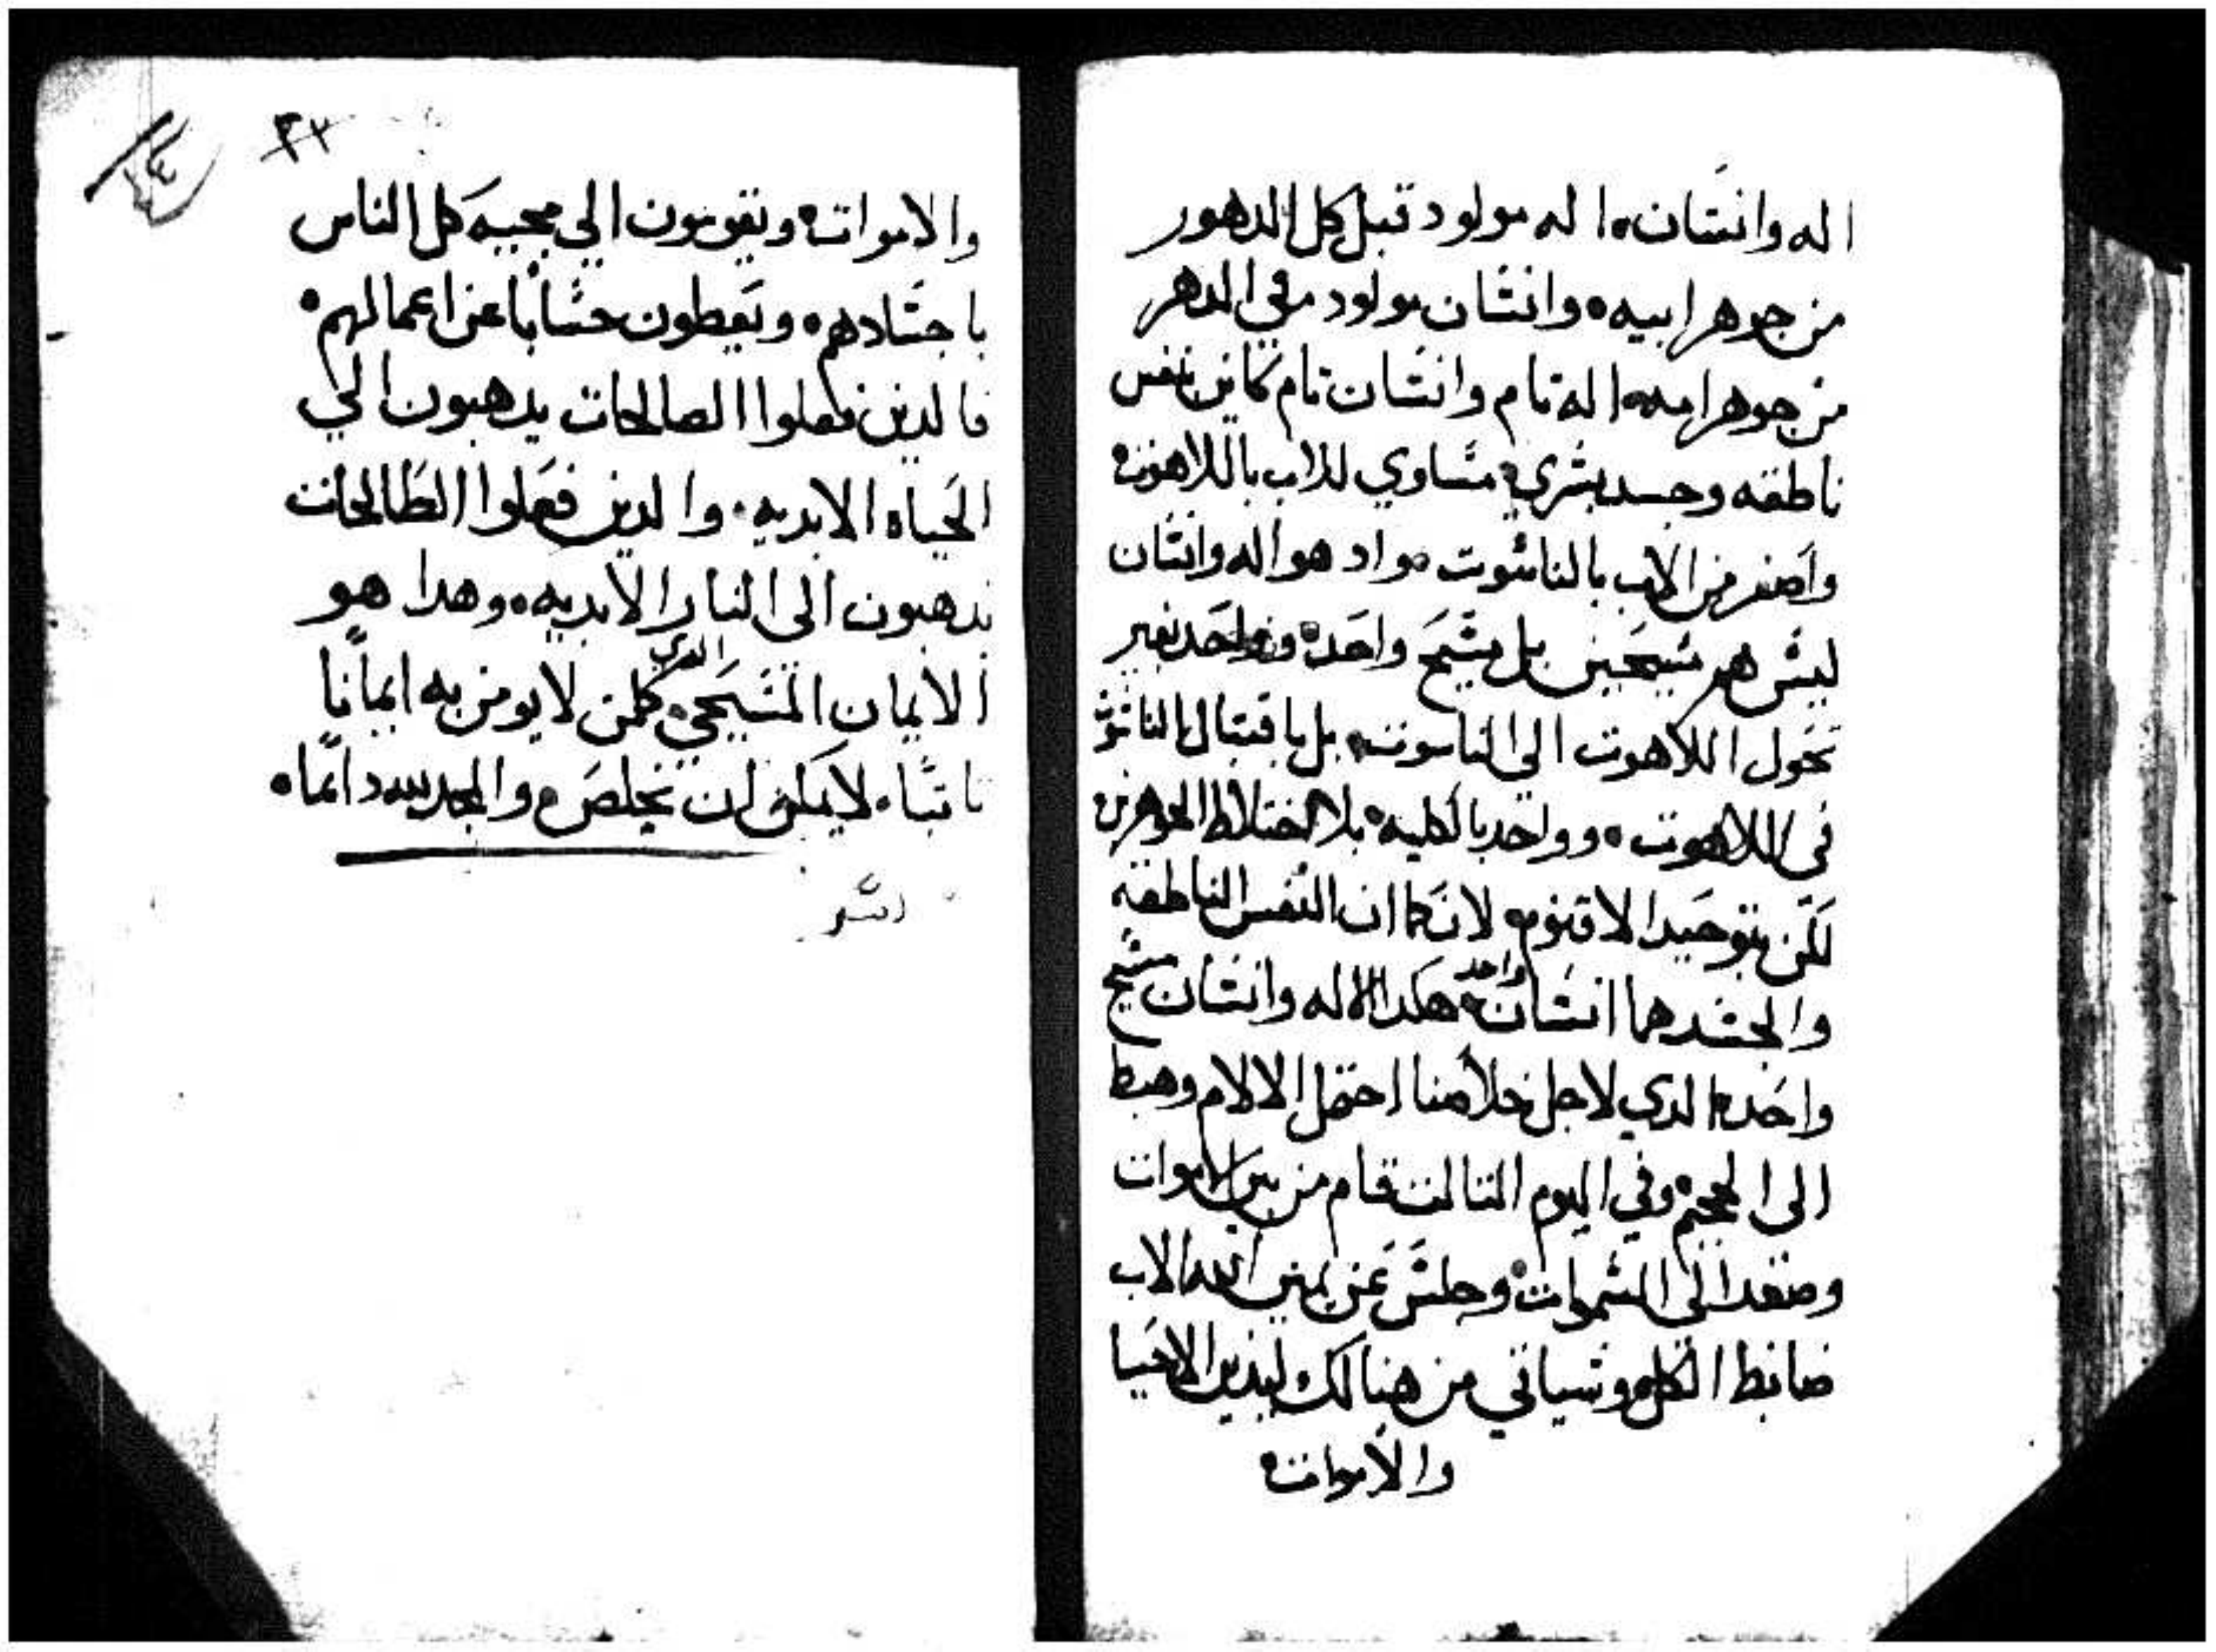 اله وانسان۰ اله مولود قبل كل الدهور
من جوهر ابيه۰ وانسان مولود في الدهر
من جوهر امه۰ اله تام وانسان تام كاين بنفس
ناطقه وجسد بشري۰ مساوي للاب باللاهوت۰
واصغر من الاب بالناسوت مواد هو اله وانسان
ليس هر مسيحين بل مسيح واحد۰ وواحد بغير
تحول اللاهوت الي الناسوت۰ بل باقتبال الناسوت
في اللاهوت۰ وواحد بالكليه۰ بلا اختلاط الجوهرين
لكن بتوحيد الاقنوم۰ لان كما ان النفس الناطقه
والجسد هما انسان واحد۰ هكدا الاله وانسان مسيح
واحد۰ الدي لاجل خلاصنا احتمل الالام وهبط
الى الجحيم۰ وفي اليوم التالت قام من بين الاموات
وصعد الى السموات۰ وجلس عن يمين الله الاب
ضابط الكل۰ وسياتي من هنالك ليدين الاحيا
والاموات۰
٢٣
٢٤
والاموات۰ ويقومون الي مجيه كل الناس
باجسادهم۰ ويعطون حسابا عن اعمالهم۰
فالدين فعلوا الصالحات يدهبون الي
الحياه الابديه۰ والدين فعلوا الطالحات
يدهبون الى النار الابديه۰ وهدا هو
الايمان المسيحي۰ الدي كلمن لا يومن به ايمانا
تابتا۰ لا يمكن ان يخلص۰ والمجد لله دايما۰